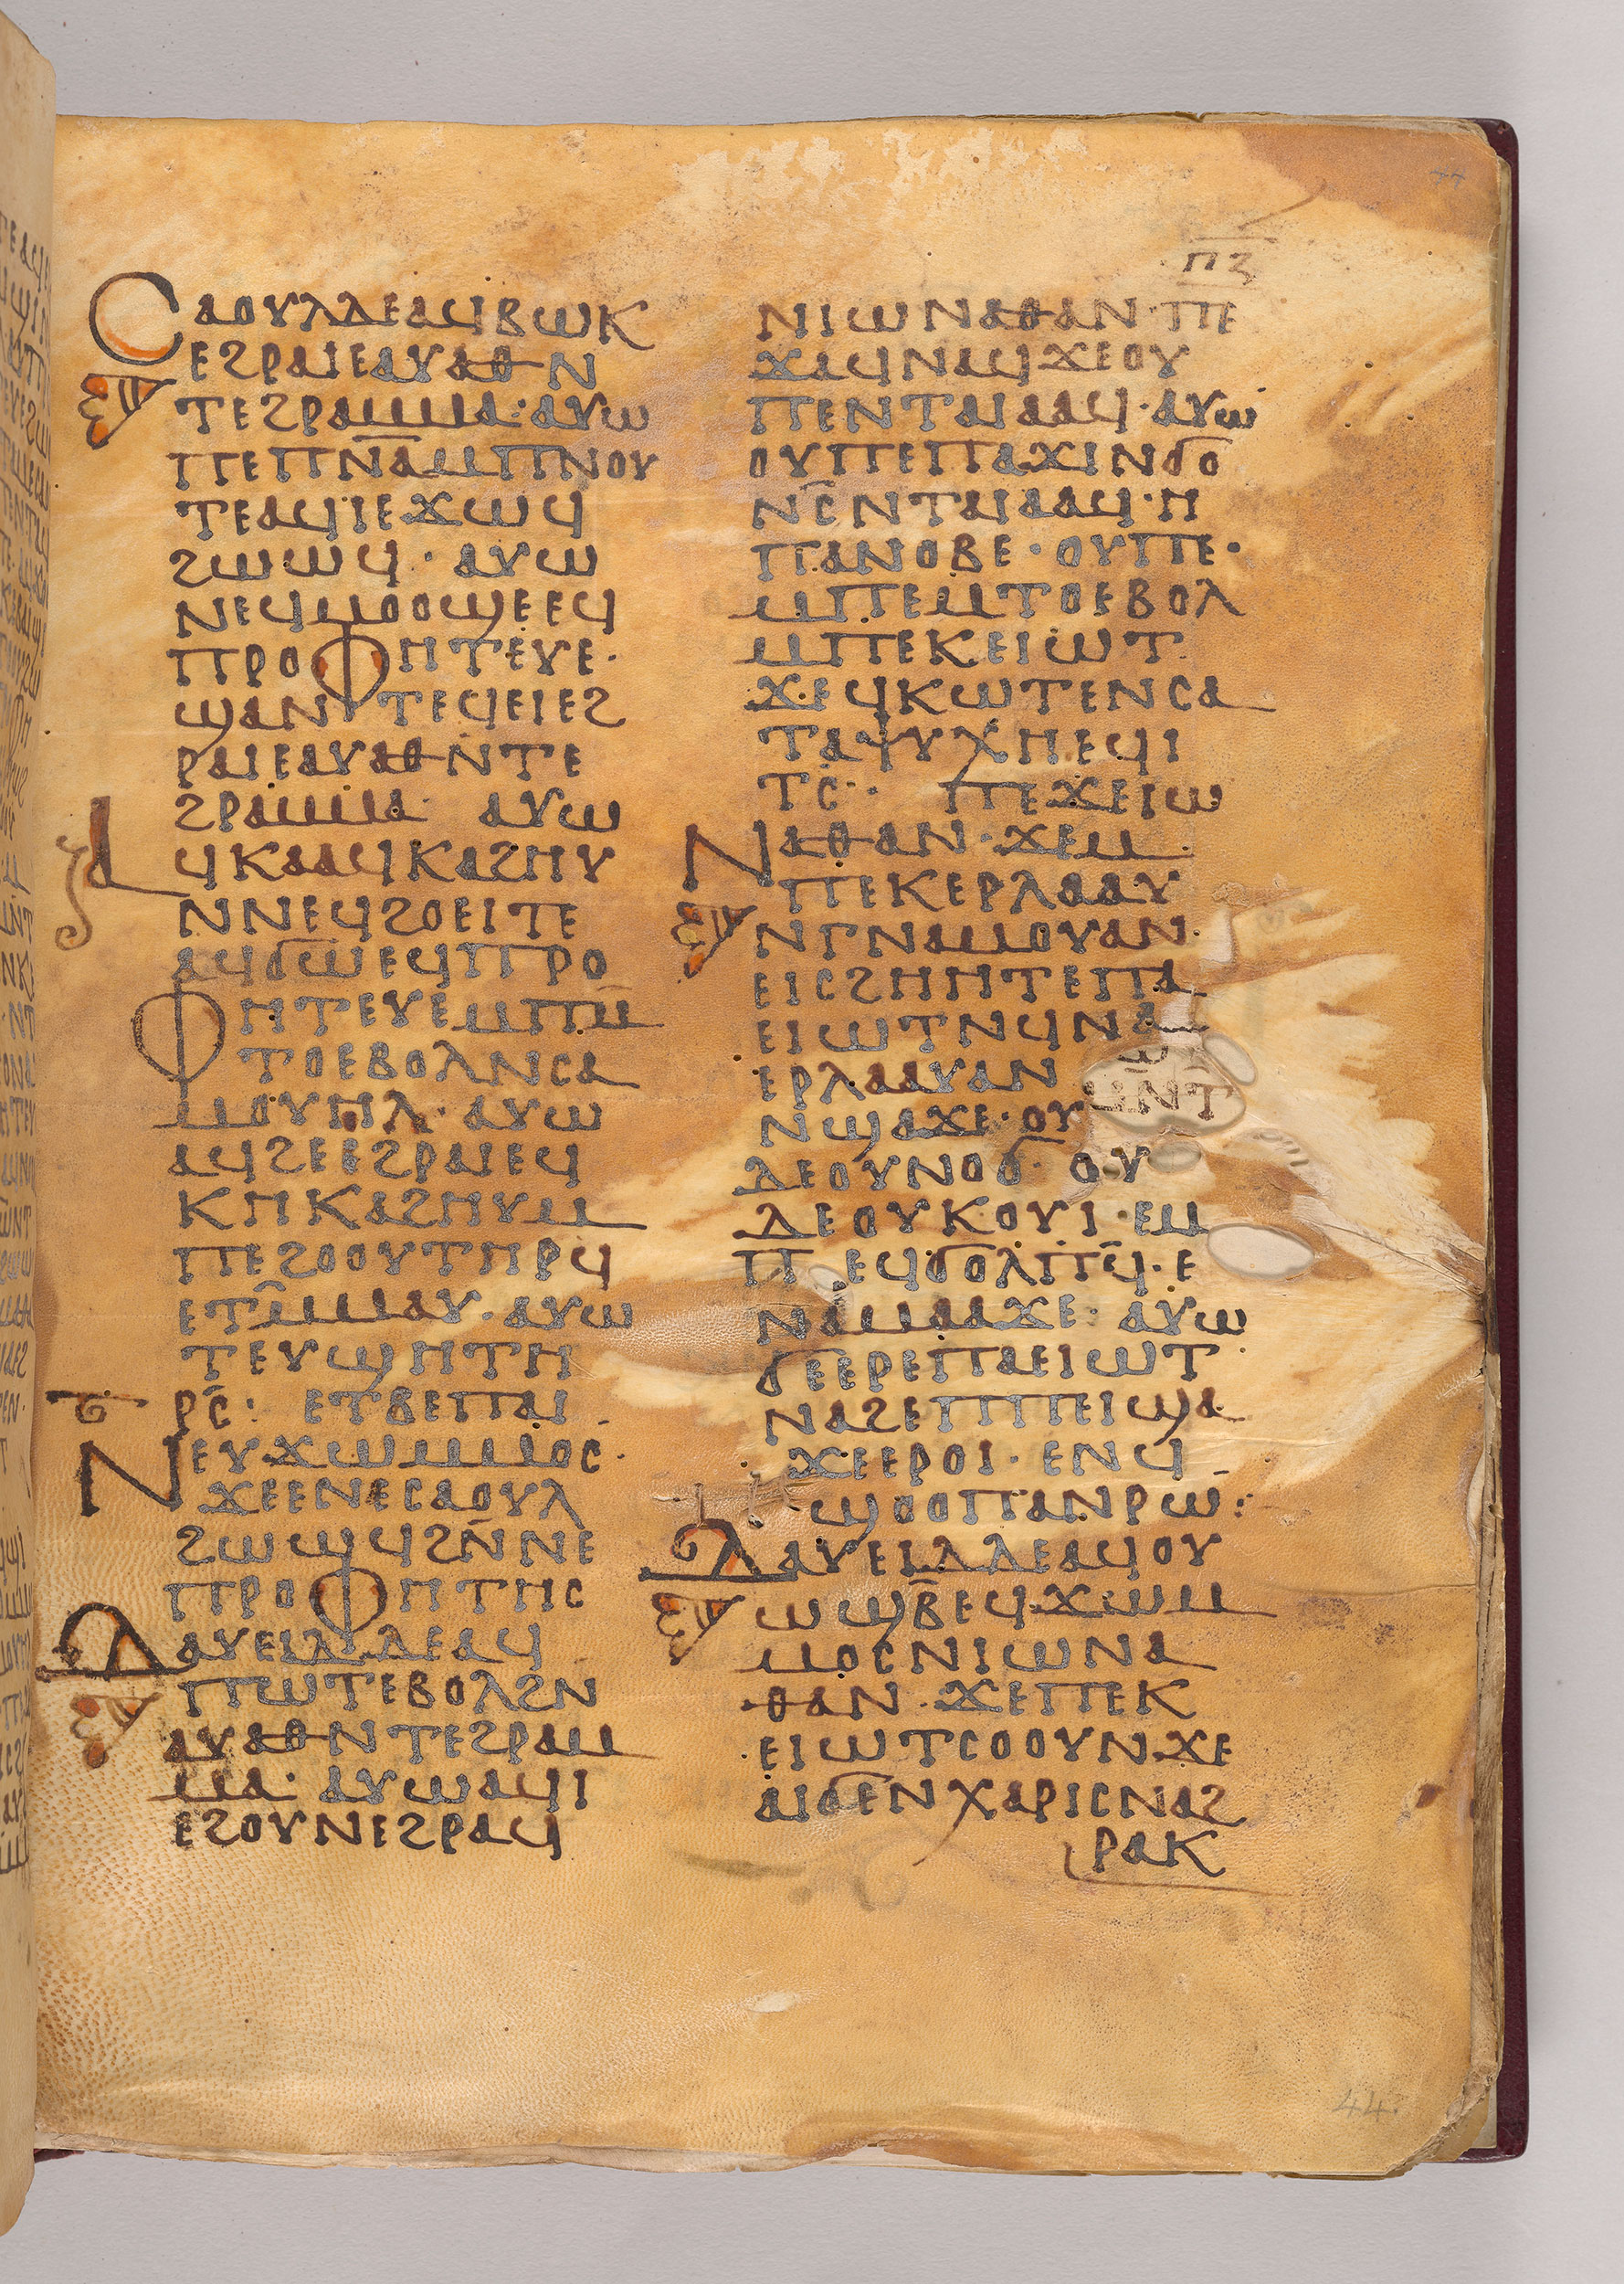 77
ⲡⲍ
Ⲥⲁⲟⲩⲗⲇⲉⲁϥⲃⲱⲕ
ⲉϩⲣⲁⲓⲉⲁⲩⲁⲑⲛ
ⲧⲉϩⲣⲁⲙⲙⲁ· ⲁⲩⲱ
ⲡⲉⲡⲛ̅ⲁ̅ⲙⲡⲛⲟⲩ
ⲧⲉⲁϥⲓⲉϫⲱϥ
ϩⲱⲱϥ· ⲁⲩⲱ
ⲛⲉϥⲙⲟⲟϣⲉⲉϥ
ⲡⲣⲟⲫⲏⲧⲉⲩⲉ·
ϣⲁⲛⲧⲉϥⲉⲓⲉϩ
ⲣⲁⲓⲉⲁⲩⲁⲑⲛⲧⲉ
ϩⲣⲁⲙⲙⲁ· ⲁⲩⲱ
Ⲁϥⲕⲁⲁϥⲕⲁϩⲏⲩ
ⲛⲛⲉϥϩⲟⲉⲓⲧⲉ
ⲁϥϭⲱⲉϥⲡⲣⲟ
ⲫⲏⲧⲉⲩⲉⲙⲡⲙ̅
ⲧⲟⲉⲃⲟⲗⲛⲥⲁ
ⲙⲟⲩⲏⲗ· ⲁⲩⲱ
ⲁϥϩⲉⲉϩⲣⲁⲓⲉϥ
ⲕⲏⲕⲁϩⲏⲩⲙ
ⲡⲉϩⲟⲟⲩⲧⲏⲣϥ
ⲉⲧⲙ̅ⲙⲁⲩ· ⲁⲩⲱ
ⲧⲉⲩϣⲏⲧⲏ
ⲣⲥ̅: ⲉⲧⲃⲉⲡⲁⲓ
Ⲛⲉⲩϫⲱⲙⲙⲟⲥ·
ϫⲉⲉⲛⲉⲥⲁⲟⲩⲗ
ϩⲱⲱϥϩⲛ̅ⲛⲉ
ⲡⲣⲟⲫⲏⲧⲏⲥ
Ⲇⲁⲩⲉⲓⲇⲇⲉⲁϥ
ⲡⲱⲧⲉⲃⲟⲗϩⲛ
ⲁⲩⲁⲑⲛⲧⲉϩⲣⲁⲙ
ⲙⲁ· ⲁⲩⲱⲁϥⲓ
ⲉϩⲟⲩⲛⲉϩⲣⲁϥ
ⲛⲓⲱⲛⲁⲑⲁⲛ· ⲡⲉ
ϫⲁϥⲛⲁϥϫⲉⲟⲩ
ⲡⲉⲛⲧⲁⲓⲁⲁϥ· ⲁⲩⲱ
ⲟⲩⲡⲉⲡⲁϫⲓⲛϭⲟ
ⲛⲥ̅ⲛⲧⲁⲓⲁⲁϥ· ⲏ
ⲡⲁⲛⲟⲃⲉ· ⲟⲩⲡⲉ·
ⲙⲡⲉⲙⲧⲟⲉⲃⲟⲗ
ⲙⲡⲉⲕⲉⲓⲱⲧ
ϫⲉϥⲕⲱⲧⲉⲛⲥⲁ
ⲧⲁⲯⲩⲭⲏⲉϥⲓ
ⲧⲥ̅· ⲡⲉϫⲉⲓⲱ
Ⲛⲁⲑⲁⲛ· ϫⲉⲙ
ⲡⲉⲕⲉⲣⲗⲁⲁⲩ
ⲛⲅⲛⲁⲙⲟⲩⲁⲛ·
ⲉⲓⲥϩⲏⲏⲧⲉⲡⲁ
ⲉⲓⲱⲧⲛϥⲛⲁ
ⲉⲣⲗⲁⲁⲩⲁⲛ
ⲛϣⲁϫⲉ· ⲟⲩ
ⲇⲉⲟⲩⲛⲟϭ· ⲟⲩ
ⲇⲉⲟⲩⲕⲟⲩⲓ· ⲉⲙ
ⲡⲉϥϭⲟⲗⲡϥ̅· ⲉ
ⲛⲁⲙⲁⲁϫⲉ· ⲁⲩⲱ
ϭⲉⲉⲣⲉⲡⲁⲉⲓⲱⲧ
ⲛⲁϩⲉⲡⲡⲉⲓϣⲁ
ϫⲉⲉⲣⲟⲓ· ⲉⲛϥ
ϣⲟⲟⲡⲁⲛⲣⲱ:
Ⲇⲁⲩⲉⲓⲇⲇⲉⲁϥⲟⲩ
ⲱϣⲃ̅ⲉϥϫⲱⲙ
ⲙⲟⲥⲛⲓⲱⲛⲁ
ⲑⲁⲛ· ϫⲉⲡⲉⲕ
ⲉⲓⲱⲧⲥⲟⲟⲩⲛϫⲉ
ⲁⲓϭⲉⲛⲭⲁⲣⲓⲥⲛⲁϩ
ⲣⲁⲕ
44